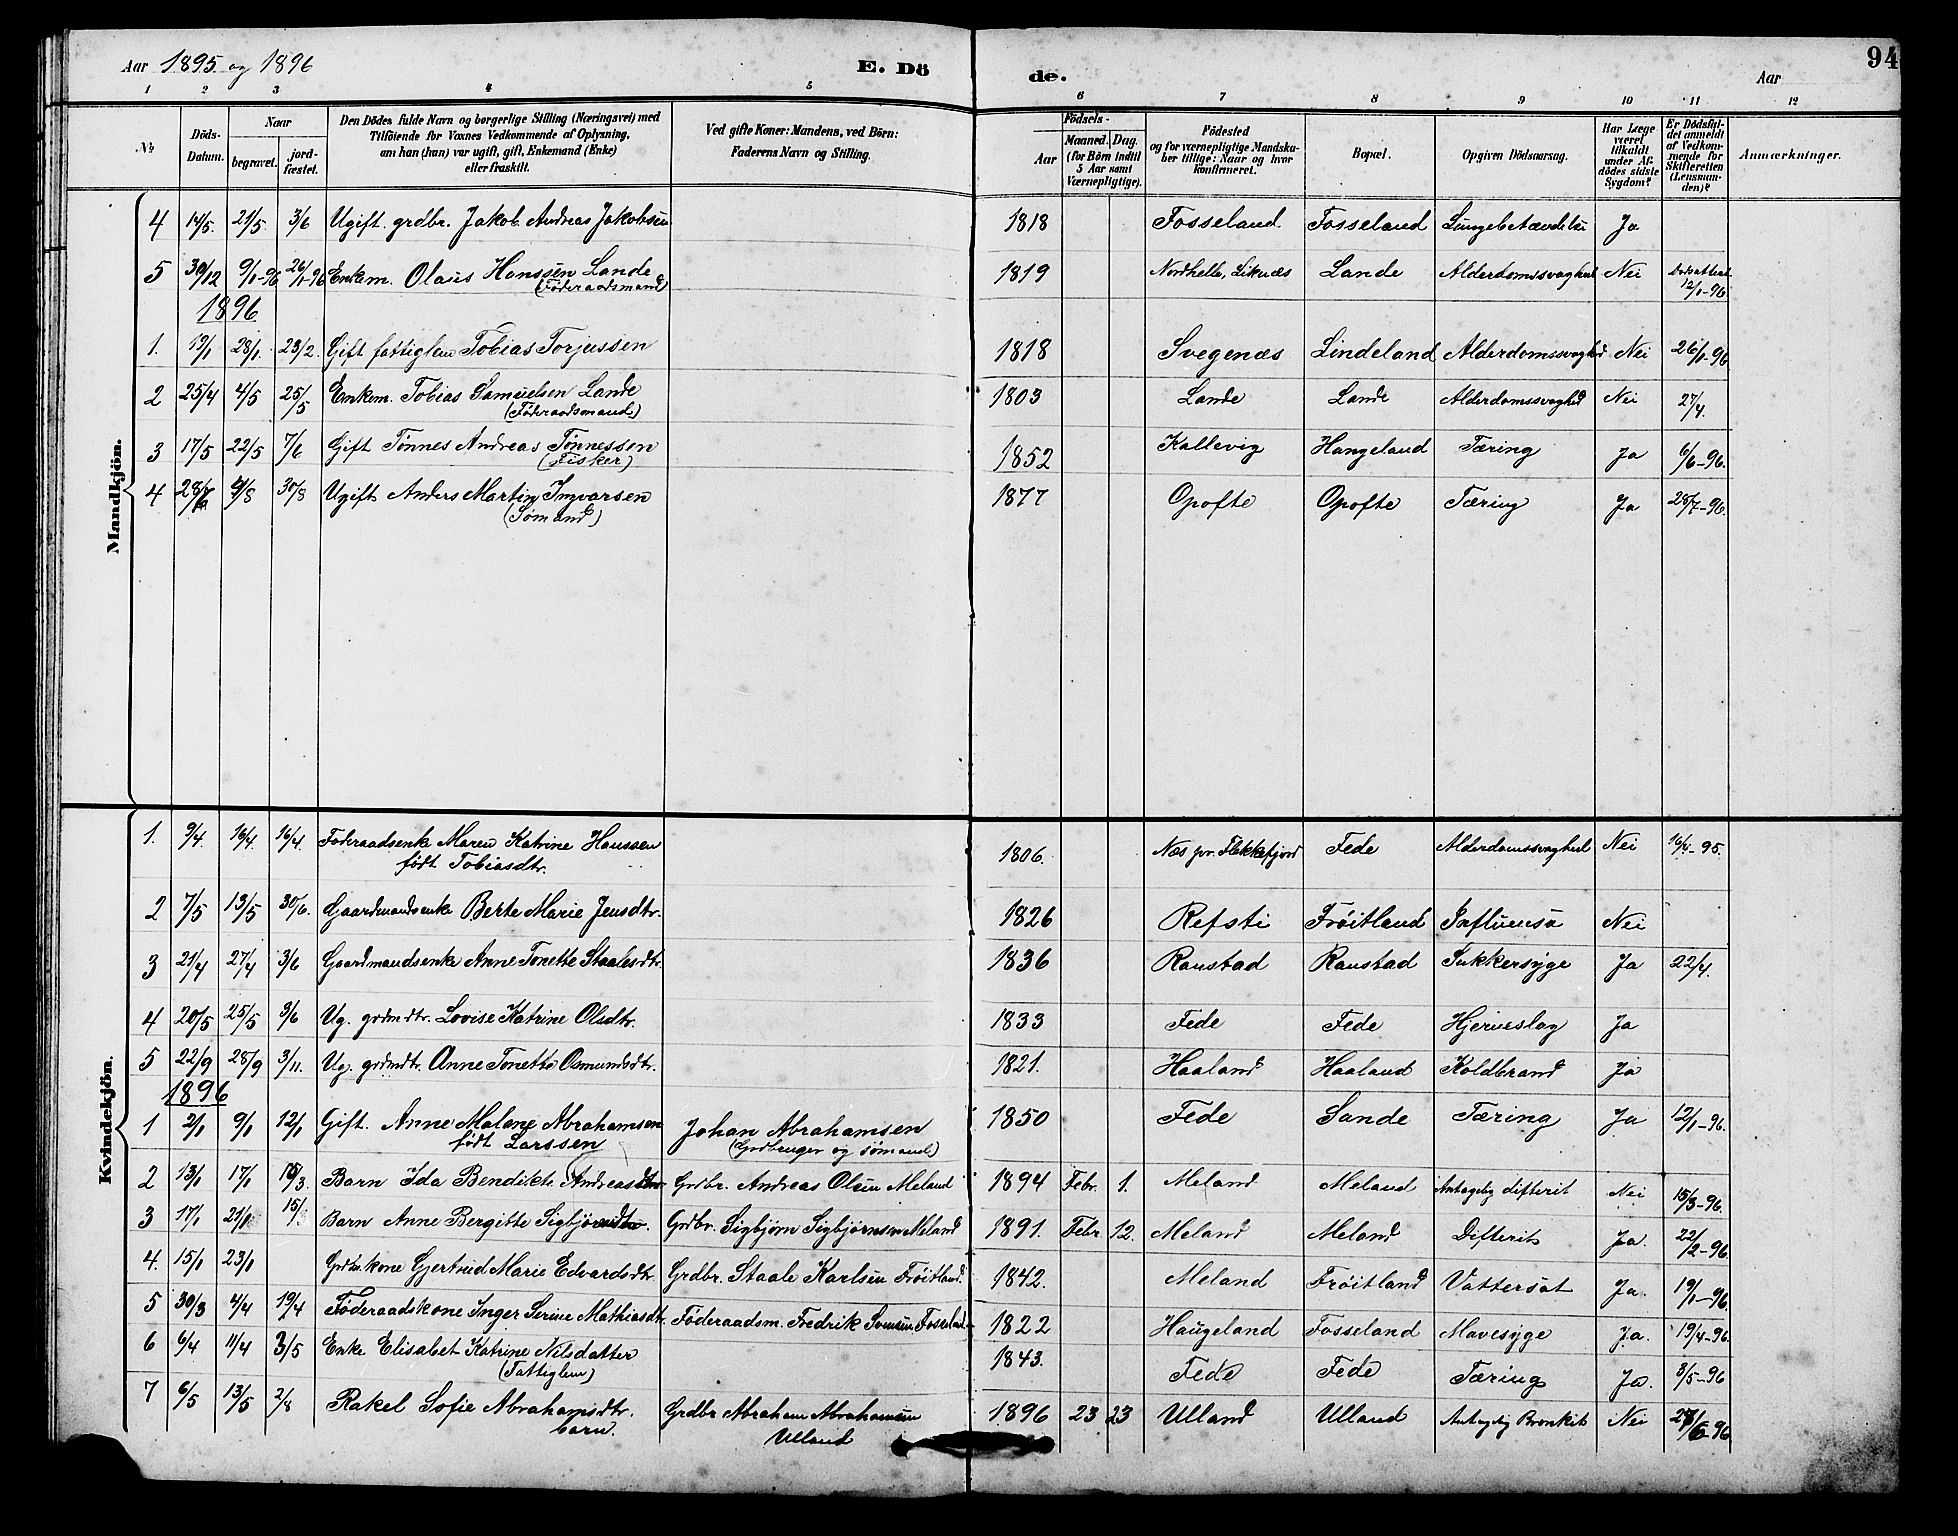 Aar 1895 og 1896 E. Dö de. Aar 94
1 2 3 4 5 6 7 8 9 10 11 12
№ Döds-Datum. Naar begravet. jordfæstet. Den Dödes fulde Navn og borgerlige Stilling (Næringsvei) med Tilföiende for Voxnes Vedkommende af Oplysning, om han (hun) var ugift, gift, Enkemand (Enke) eller fraskilt. Ved gifte Koner: Mandens, ved Börn: Faderens Navn og Stilling. Födsels- Aar Maaned. Dag. (for Börn indtil 5 Aar samt Værnepligtige). Födested og for værnepligtige Mandskaber tillige: Naar og hvor konfirmeret. Bopæl. Opgiven Dödsaarsag. Har Læge været tilkaldt under Afdödes sidste Sygdom? Er Dödsfaldet anmeldt af Vedkommende for Skifteretten (Lensmanden)? Anmærkninger.
Mandkjön.
4 14/5. 21/5. 3/6 Ugift. grdbr. Jakob Andreas Jakobsen 1818 Fosseland Fosseland Lungebetændelse Ja
5 30/12 9/1-96 26/1-96 Enkem. Olaus Hanssen Lande 1819 Nordhelle, Liknæs Lande Alderdomssvaghed Nei
(Føderaadsmand) 12/1-96.
1896
1. 19/1 28/1. 23/2. Gift fattiglem Tobias Torjussen 1818 Svegenæs Lindeland Alderdomssvaghed Nei 26/1-96
2 25/4 4/5 25/5 Enkem. Tobias Samuelsen Lande 1803 Lande Lande Alderdomssvaghed Nei 27/4.
(Føderaadsmand)
3 17/5 22/5 7/6 Gift Tønnes Andreas Tønnessen 1852 Kallevig Haugeland Tæring Ja 6/6-96.
(Fisker)
4 30/8 Ugift Anders Martin Ingvarsen 1877 Opofte Opofte Tæring Ja 28/7-96.
(Sømand)
Kvindekjön.
1. 9/4. 16/4. 16/4 Føderaadsenke Maren Katrine Hanssen 1806. Næs pr. Flekkefjord Fede Alderdomssvaghed Nei 16/4-95.
født Tobiasdtr.
2 7/5 13/5 30/6. Gaardmandsenke Berte Marie Jensdtr. 1826 Refsti Frøitland Influensa Nei
3 21/4 27/4 3/6 Gaardmandsenke Anne Tonette Staalesdtr. 1836 Raustad Raustad Sukkersyge Ja 22/4.
4 20/5 25/5 3/6 Ug. grdmdtr. Lovise Katrine Olsdtr. 1833 Fede Fede Hjerneslag Ja
5 22/9 28/9 3/11. Ug. grdmdtr. Anne Tonette Osmundsdtr. 1821. Haaland Haaland Koldbrand Ja
1896
1 2/1 9/1 12/1 Gift. Anne Malene Abrahamsen Johan Abrahamsen 1850 Fede Sande Tæring Ja 12/1-96.
født Larssen (Grdbruger og sømand)
2 13/1 17/1 15/3. Barn Ida Bendikte Andreasdtr. Grdbr. Andreas Olsen Meland 1894 Febr. 1. Meland Meland Antagelig difterit Nei 15/3-96.
3 17/1 21/1 Barn Anne Bergitte Sigbjørnsdtr. Grdbr. Sigbjørn Sigbjørnsen Meland 1891. Febr. 12. Meland Meland Difterit Ja. 22/2-96
4. 15/1 23/1 Grdm.kone Gjertrud Marie Edvardsdtr. Grdbr. Staale Karlsen Frøitland. 1842. Meland Frøitland Vattersot Ja. 19/1-96.
5 30/3 4/4 19/4 Føderaadskone Inger Serine Mathiasdtr. Føderaadsm. Fredrik Fosseland 1822 Haugeland Fosseland Mavesyge Ja. 19/4-96.
6 6/4 11/4 3/5 Enke Elisabet Katrine Nilsdatter 1843. Fede Fede Tæring Ja. 3/5-96
(Fattiglem)
7 6/5 13/5 2/8 Rakel Sofie Abrahamsdtr. Grdbr Abraham Abrahamsen 1896 23 23 Ulland Ulland Antagelig Bronkit Nei
barn. Ulland